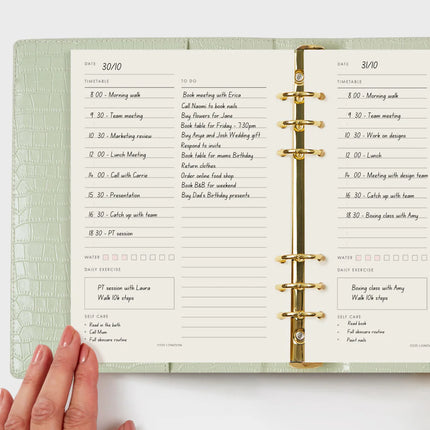 DATE 30/10
TIMETABLE
8 00 - Morning walk
9 30 - Team meeting
10 30 - Marketing review
12 00 - Lunch Meeting
14 00 - Call with Carrie
15 30 - Presentation
16 30 - Catch up with team
18:30 - PT session
WATER
DAILY EXERCISE
PT session with Laura
Walk 10k steps
SELF CARE
• Read in the bath
• Call Mum
• Full skincare routine
TO DO
Book meeting with Erica
Call Naomi to book nails
Buy flowers for Jane
Book table for Friday - 7:30pm
Buy Anya and Josh Wedding gift
Respond to invite
Book table for mums Birthday
Return clothes
Order online food shop
Book B&B for weekend
Buy Dad's Birthday presents
DATE 31/10
TIMETABLE
8 00 - Morning walk
9 30 - Team meeting
10 30 - Work on designs
12 00 - Lunch
14 00 - Meeting with design team
16 30 - Catch up with team
18 30 - Boxing class with Amy
WATER
DAILY EXERCISE
Boxing class with Amy
Walk 10k steps
SELF CARE
• Read book
• Full skincare routine
• Paint nails